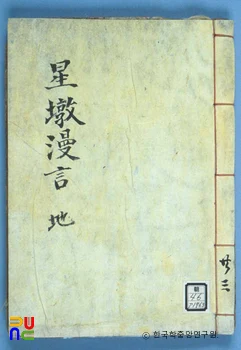 星墩漫言 地
共三
EnUC
한국학중앙연구원